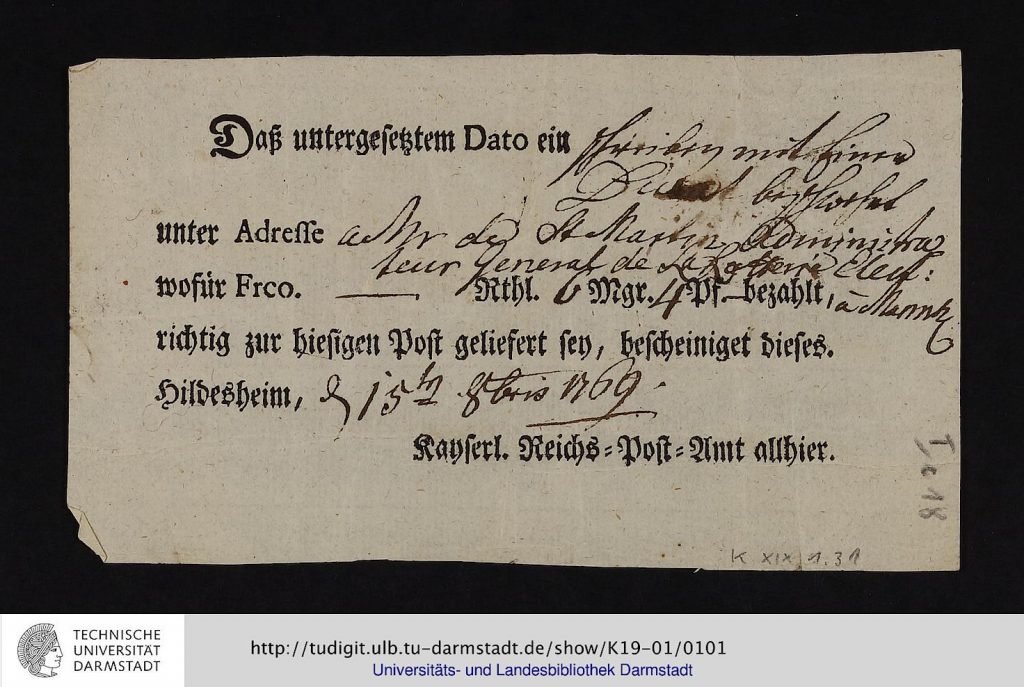 Daß untergesetztem Dato ein schreiben mit Einen
Ducat beschwehrt
unter Adresse a Mr de St Martin Administra
teur General de La Lotterie Elect:
wofür Frco. — Rthl. 6 Mgr. 4 Pf. bezahlt, à Mannh
richtig zur hiesigen Post geliefert sey, bescheiniget dieses.
Hildesheim, d 15tn 8bris 1769.
Kayserl. Reichs-Post-Amt allhier.
K XIX 1.31
TECHNISCHE
UNIVERSITÄT
DARMSTADT
http://tudigit.ulb.tu-darmstadt.de/show/K19-01/0101
Universitäts- und Landesbibliothek Darmstadt